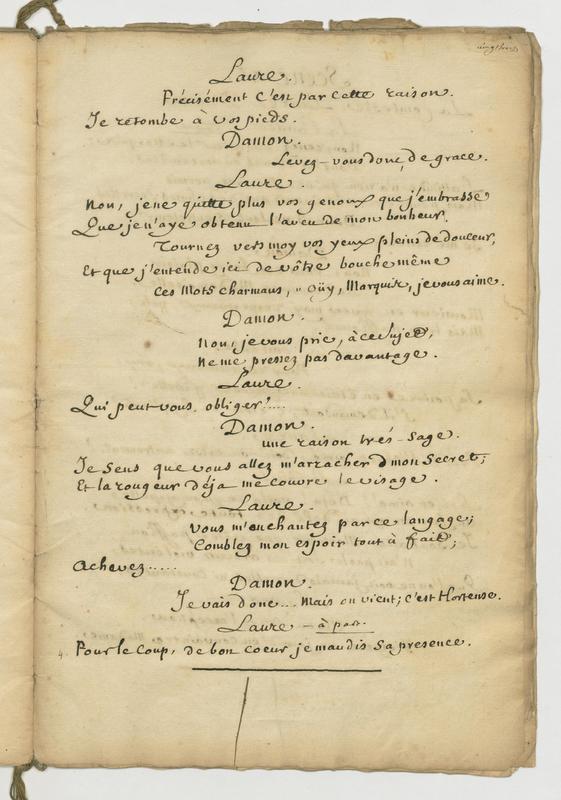 Laure.
Précisément C'est par cette raison.
Je retombe à vos pieds.
Damon.
Levez-vous donc, de grace.
Laure.
Non, je ne quitte plus vos genoux que j'embrasse
Que je n'aye obtenu l'aveu de mon bonheur.
Tournez vers moy vos yeux pleins de douceur,
Et que j'entende ici de vôtre bouche même
Ces Mots charmans, " Oüy, Marquis, je vous aime.
Damon.
Non, je vous prie, à ce sujet,
Ne me pressez pas davantage.
Laure.
Qui peut vous obliger?.....
Damon.
une raison trés-sage.
Je sens que vous allez m'arracher mon Secret;
Et la rougeur déja me couvre le visage.
Laure.
Vous m'enchantez par ce langage;
Comblez mon espoir tout à fait;
Achevez.....
Damon.
Je vais donc... Mais on vient; c'est Hortense.
Laure - à part.
Pour le Coup, de bon Coeur je maudis Sa presence.